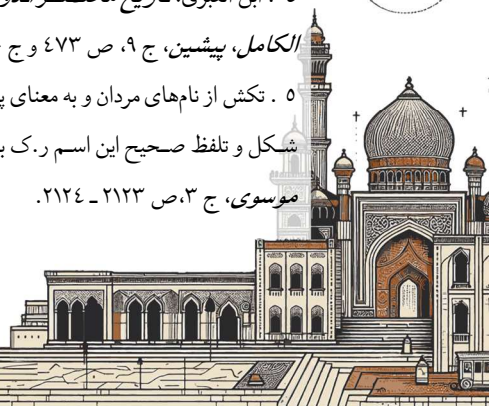 الکامل، پیشین، ج ۹، ص ٤۷۳ و ج
٥ . تکش از نام‌های مردان و به معنای
شـکل و تلفظ صـحیح این اسـم ر.ک
موسوی، ج ۳،ص ۲۱۲۳ ـ ۲۱۲٤.